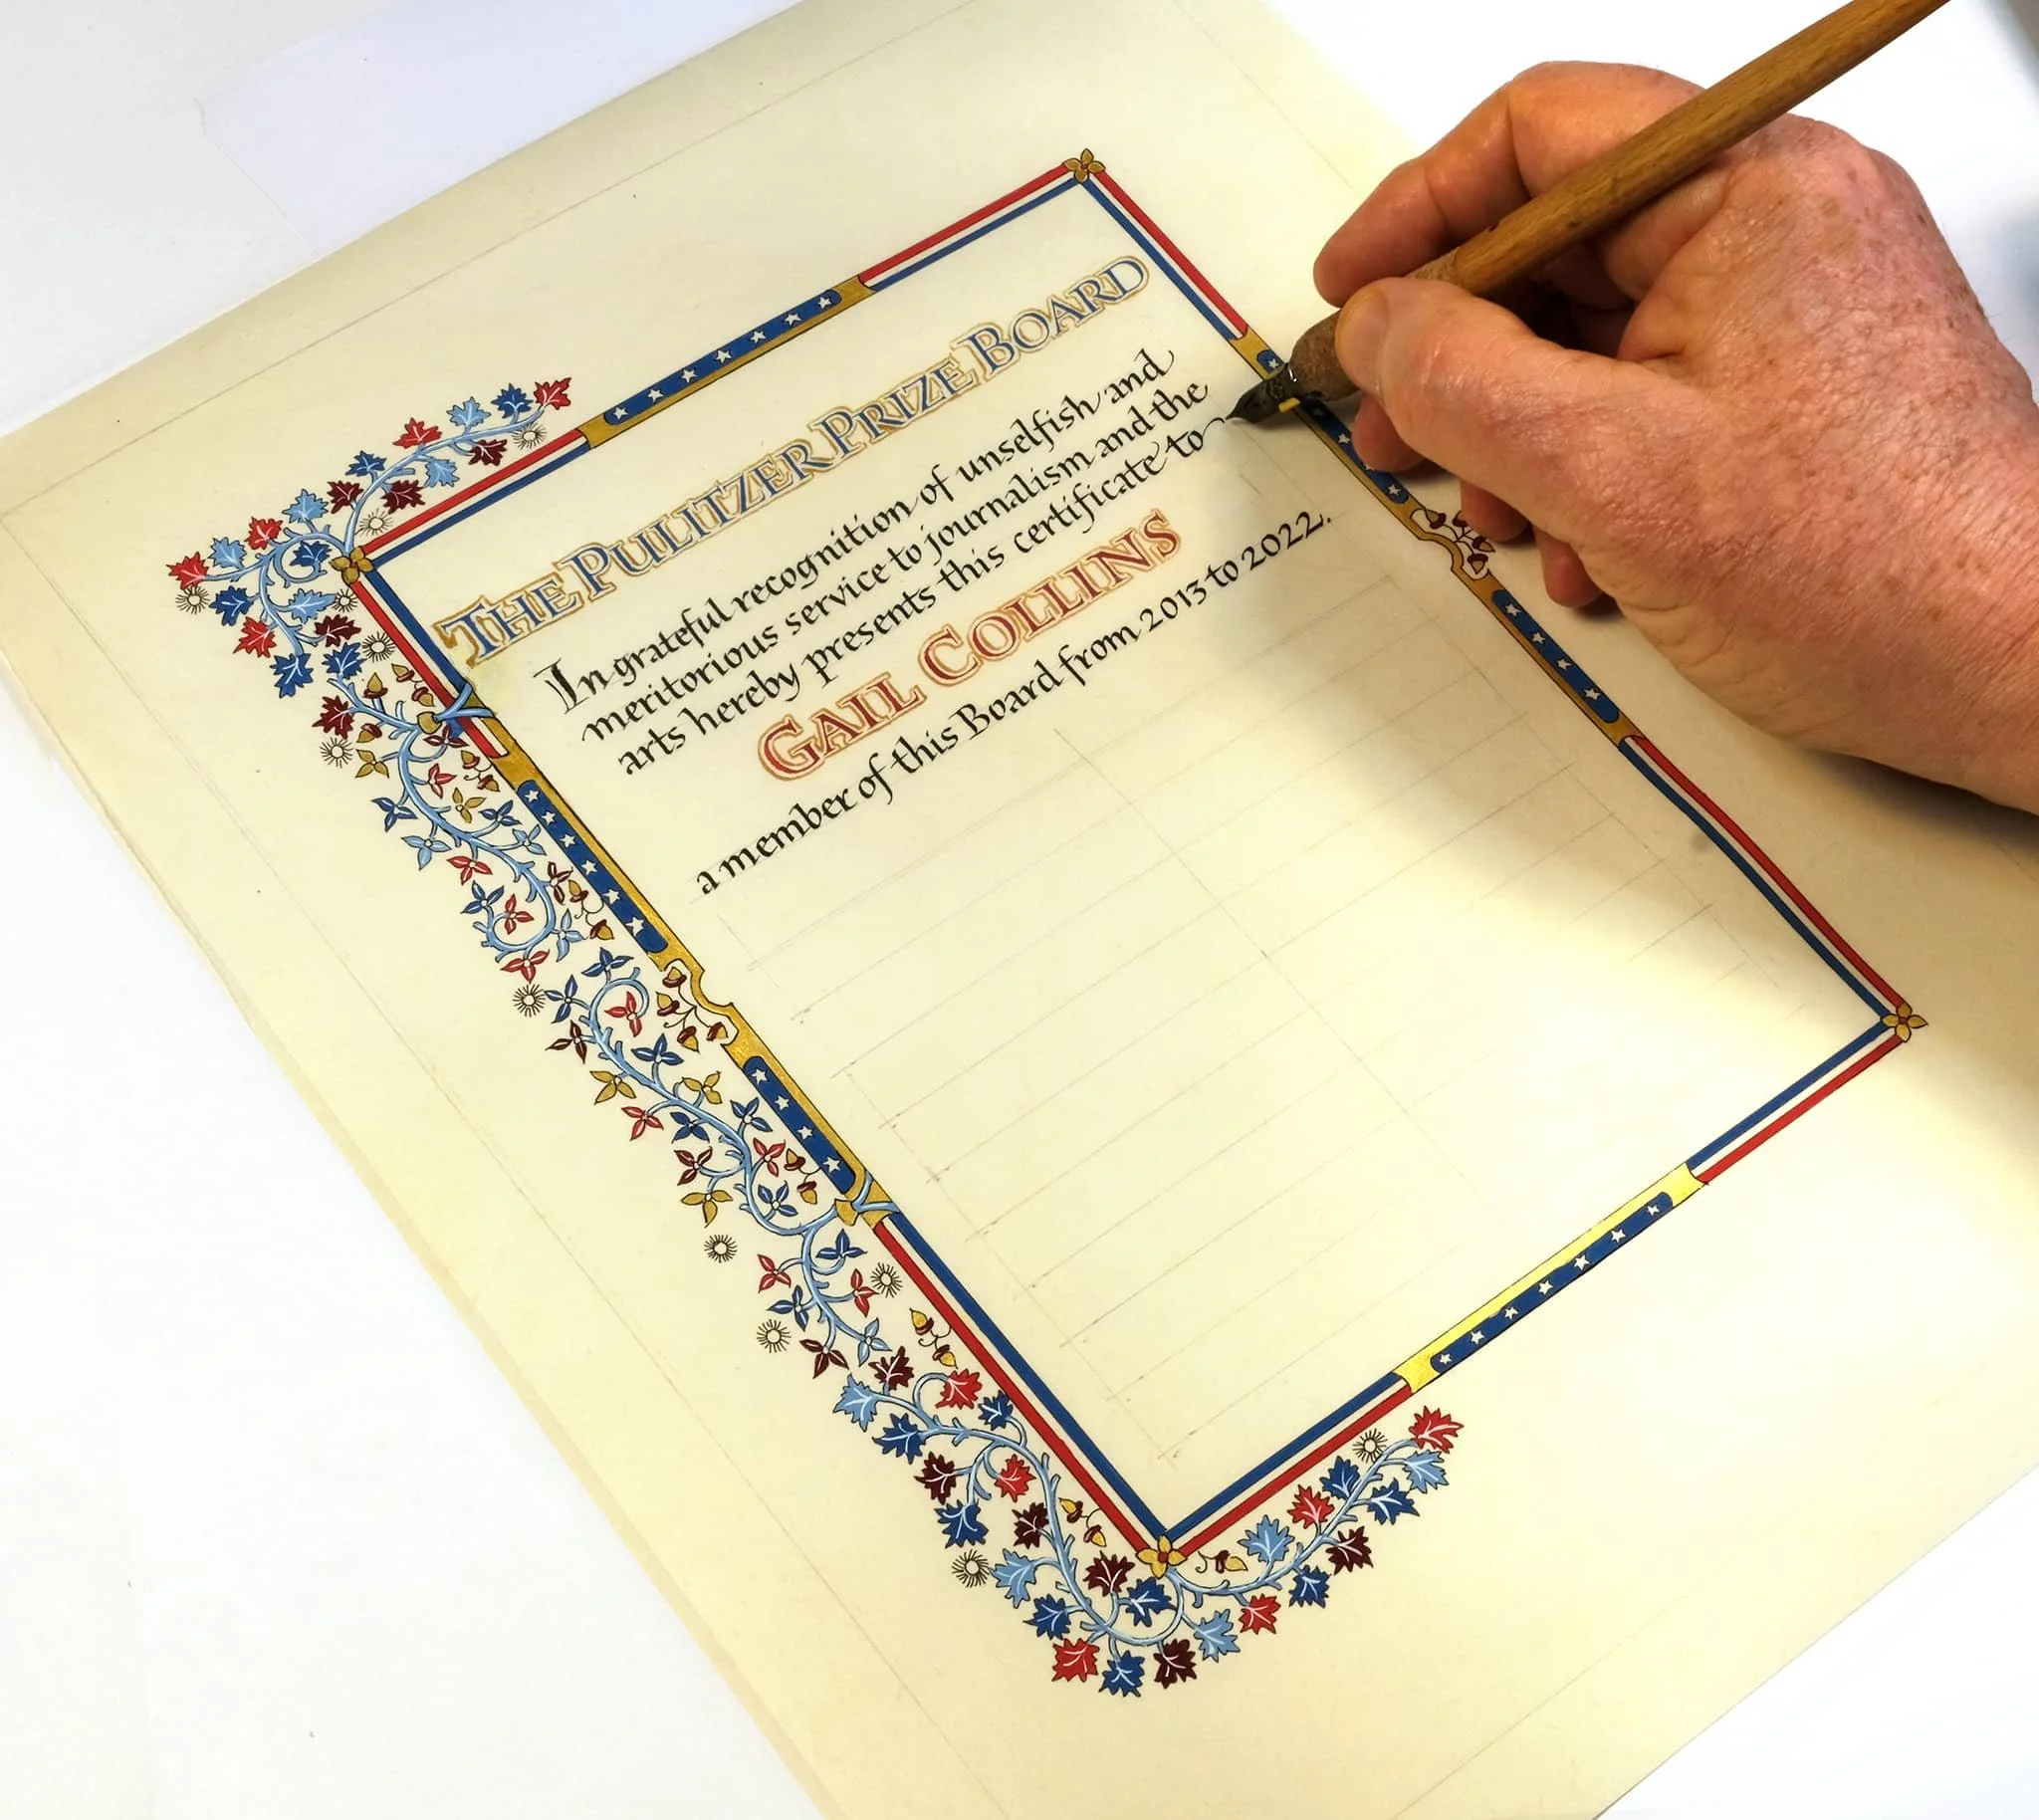 THE PULITZER PRIZE BOARD
In grateful recognition of unselfish and
meritorious service to journalism and the
arts hereby presents this certificate to
GAIL COLLINS
a member of this Board from 2013 to 2022.